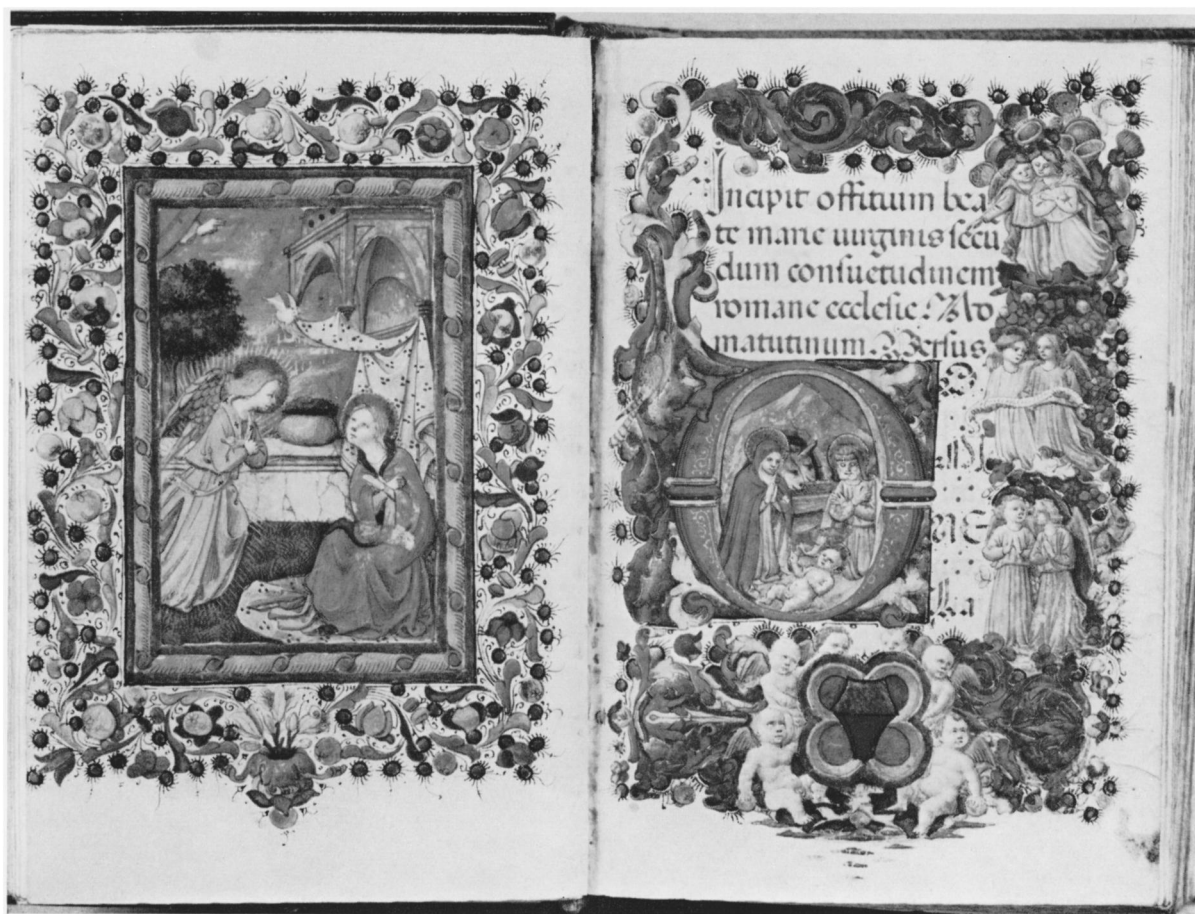 Incipit offitium bea
te marie uirginis secu
dum consuetudinem
romane ecclesie. Ad
matutinum. Versus.
D
NE
la